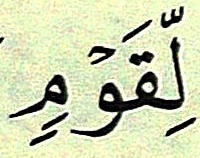 لِّقَوۡمٍ